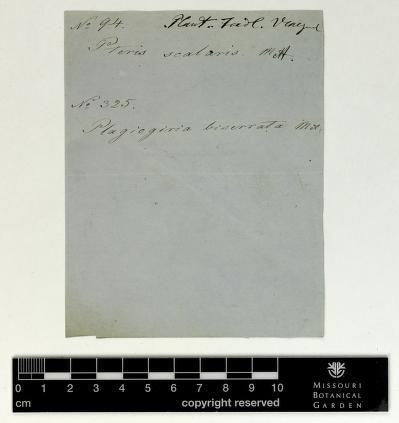 No 94. Plant. Fedl. Venez
Pteris scalaris. Mett.
No 325.
Plagiogiria biserrata Mett.
0 1 2 3 4 5 6 7 8 9 10
cm copyright reserved
MISSOURI
BOTANICAL
GARDEN